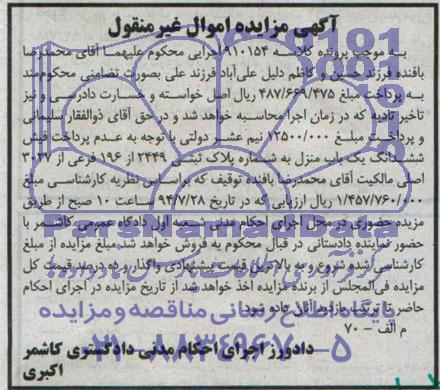 آگهی مزایده اموال غیرمنقول
به موجب پرونده کلاسه ۹۱۰۱۵۴ اجرایی محکوم علیهما آقای محمدرضا
بافنده فرزند حسین و کاظم دلیل علی‌آباد فرزند علی بصورت تضامنی محکومند
به پرداخت مبلغ ۴۸۷/۶۶۹/۴۷۵ ریال اصل خواسته و خسارت دادرسی و نیز
تاخیر تادیه که در زمان اجرا محاسبه خواهد شد و در حق آقای ذوالفقار سلیمانی
و پرداخت مبلغ ۱۲۵۰۰/۰۰۰ نیم عشر دولتی با توجه به عدم پرداخت فیش
ششدانگ یک باب منزل به شماره پلاک ثبتی ۲۴۴۹ از ۱۹۶ فرعی از ۳۰۲۷
اصلی مالکیت آقای محمدرضا بافنده توقیف که براساس نظریه کارشناسی مبلغ
۱/۴۵۷/۷۶۰/۰۰۰ ریال ارزیابی که در تاریخ ۹۴/۷/۲۸ ساعت ۱۰ صبح از طریق
مزیده حضوری در محل اجرای احکام مدنی شعبه اول دادگاه عمومی کاشمر با
حضور نماینده دادستانی در قبال محکوم به فروش خواهد شد مبلغ مزایده از مبلغ
کارشناسی شده شروع و به بالاترین قیمت پیشنهادی واگذار و ده درصد قیمت کل
مزایده فی‌المجلس از برنده مزایده اخذ خواهد شد از تاریخ مزایده در اجرای احکام
حاضر تا ترتیب بازدید آنان داده شود.
م الف - ۷۰
دادورز اجرای احکام مدنی دادگستری کاشمر
اکبری
ParsNamadData
پایگاه اطلاع رسانی مناقصه و مزایده
۰۲۱-۸۸۳۴۹۶۷۰-۵